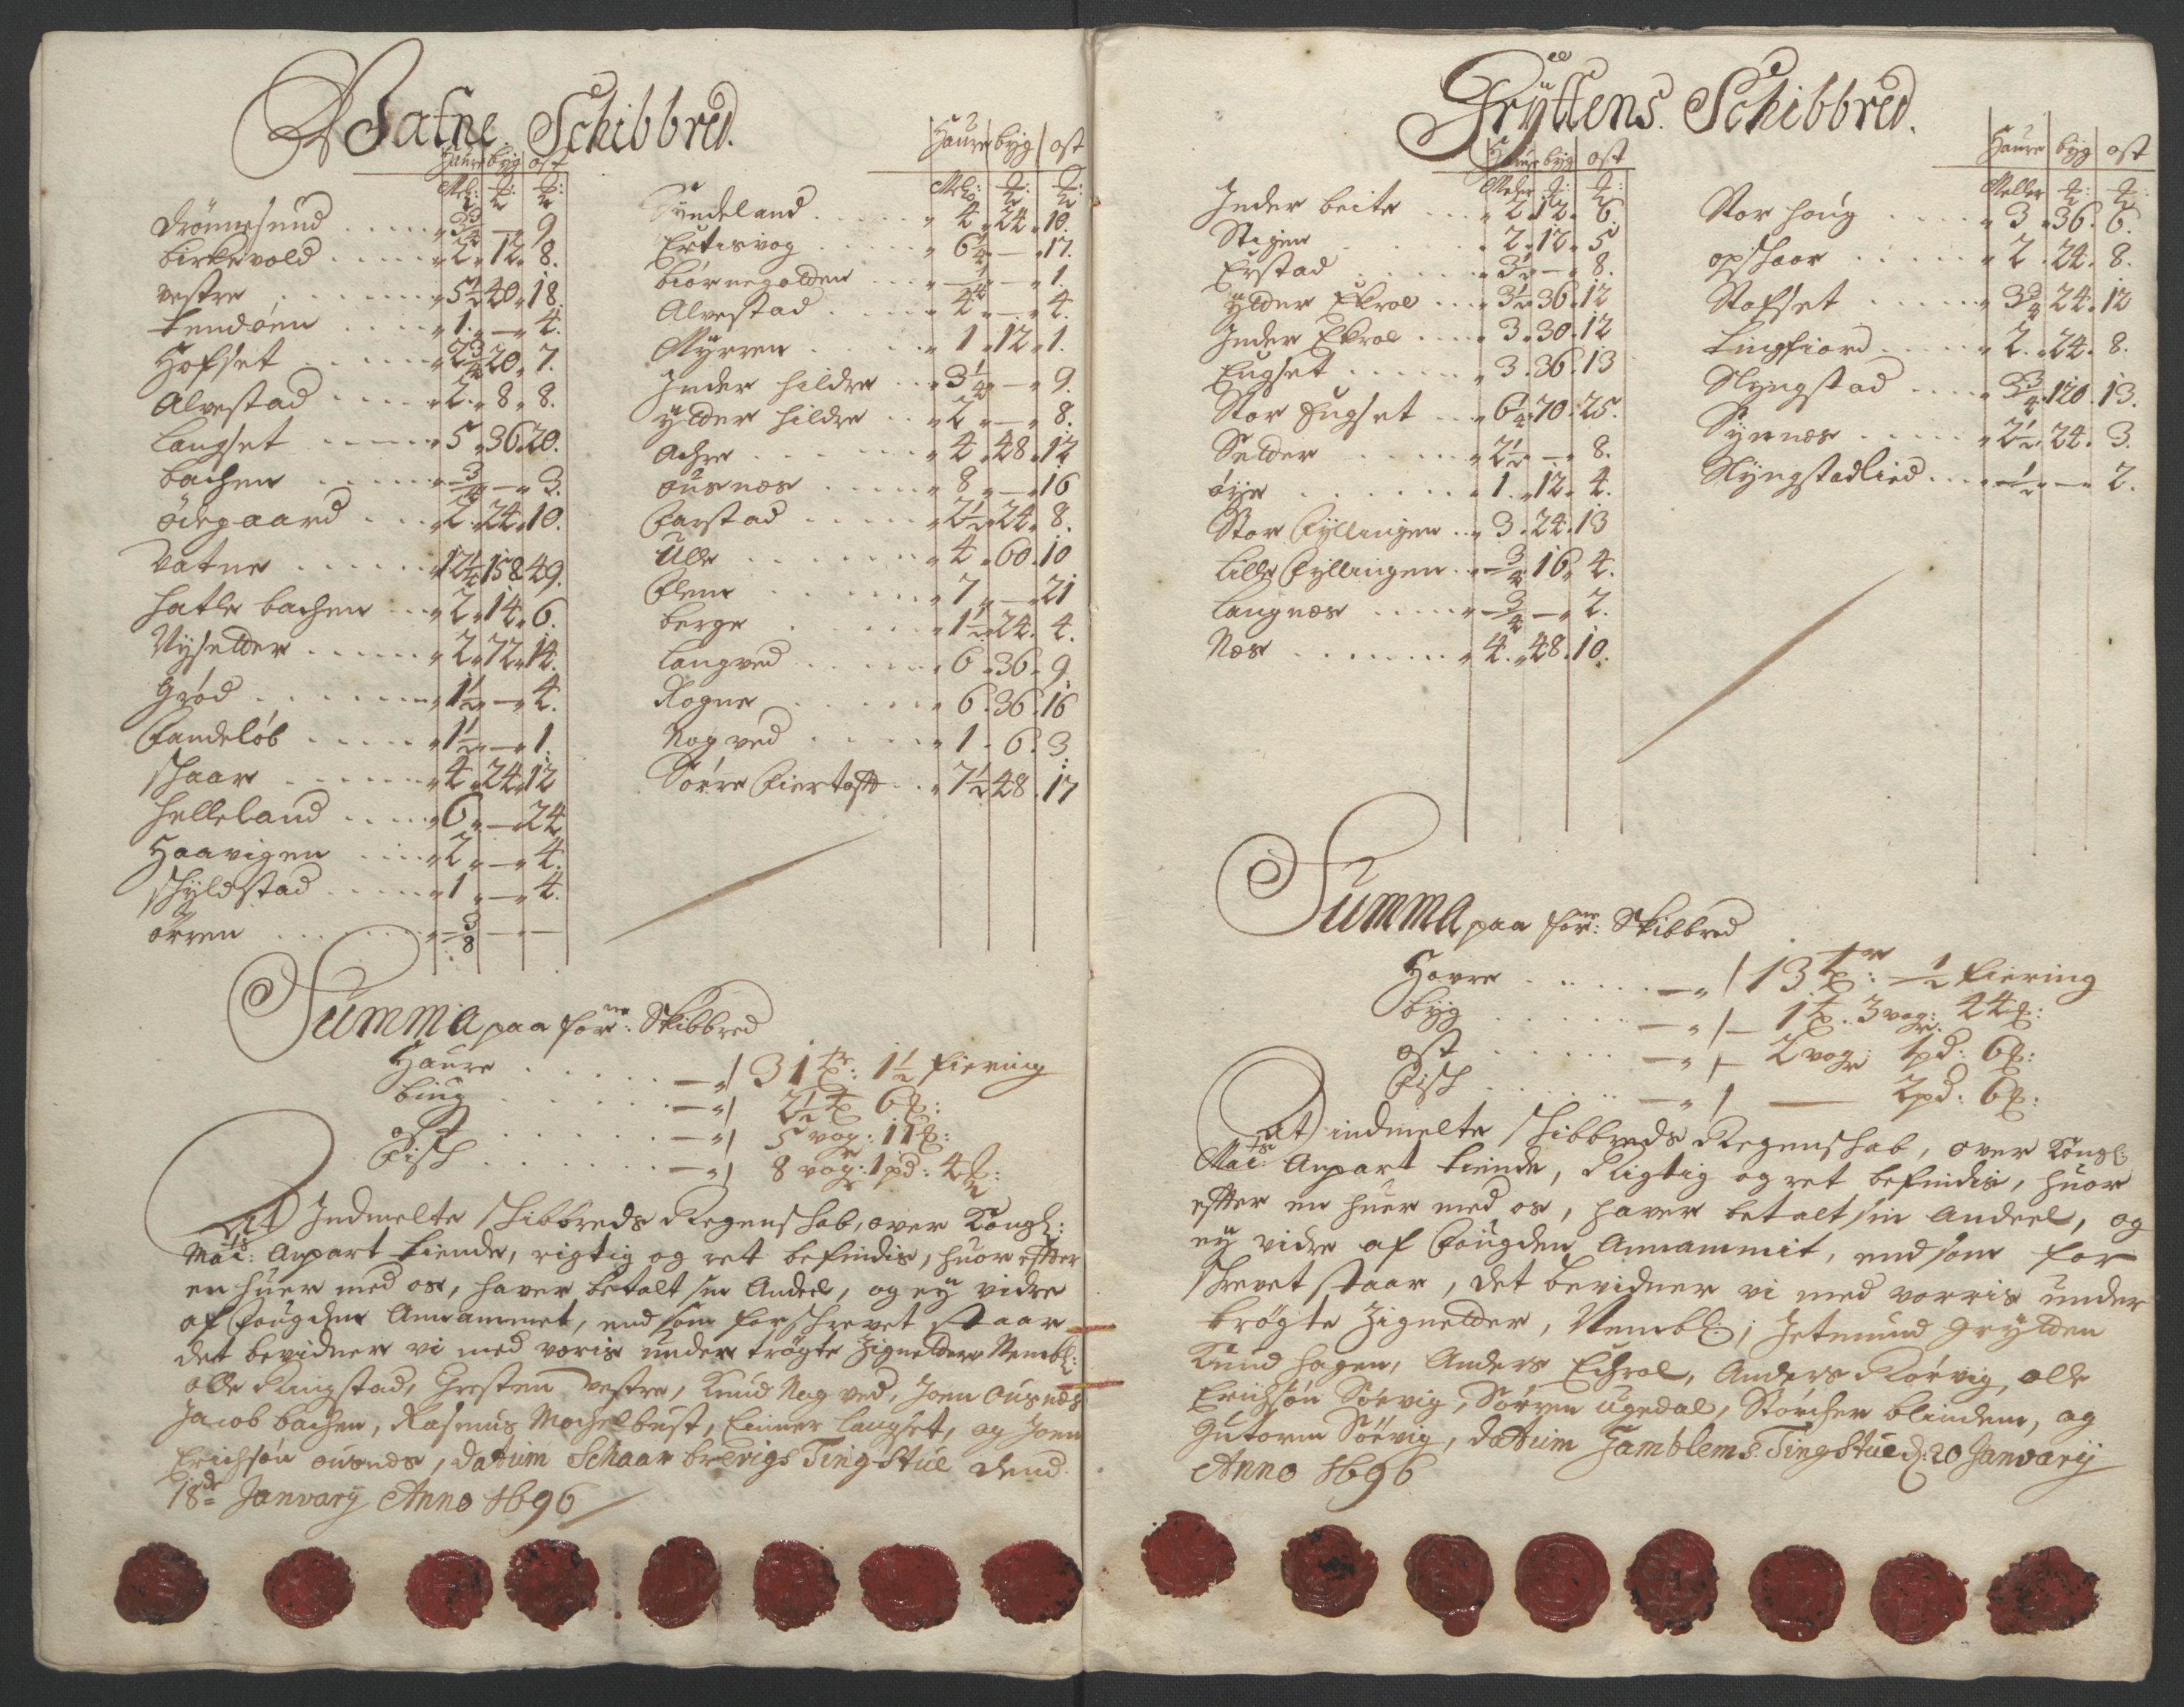 Vatne Schibbred.
Haure byg ost
Mel: ℔: ℔:
Drönnesund . . . . . " 3 3/4 " — " 9
Birkevold . . . . . " 2 " 12 " 8.
Vestre . . . . . . " 5 1/2 40 " 18.
Tendöen . . . . " 1. " — " 4.
Hofset . . . . . " 2 3/4 20 " 7.
Alvestad . . . . " 2 " 8 " 8.
Langset . . . . . " 5 " 36 20.
Bachen . . . . . " 3/4 " — " 3.
Ödegaard . . . " 2 " 24 " 10.
Vatne . . . . . . " 12 1/4 158 49.
Hatle bachen . . " 2 " 14 " 6.
Nysetter . . . . . " 2 " 72 " 14.
Gröd . . . . . . . " 1 1/2 " — " 4.
Fandelöb . . . . . " 1 1/2 " — " 1.
Schaar . . . . . . " 4 " 24 " 12
Helleland . . . . " 6 " — 24
Haavigen . . . . " 2 " — " 4.
Schyldstad . . . . . " 1 " — " 4.
Örren . . . . . . . " 3/8 — —
Haure byg ost
Mel: ℔: ℔:
Syndeland . . . . . " 4 " 24 " 10.
Eetisvog . . . . . " 6 1/4 " — " 17.
Biörnegolden . . . " 1/4 " — " 1.
Alvestad . . . . . " 4 " — " 4.
Myrren . . . . . " 1 " 12 " 1.
Inder hildre . . " 3 1/4 " — " 9.
Ytder hildre . . " 2 " — " 8.
Achre . . . . . . . " 4 " 48 " 12
Ousnes . . . . . " 8 " — " 16
Farstad . . . . . " 2 1/2 " 24 " 8.
Ulle . . . . . . . " 4 " 60 . 10
Flem . . . . . . . " 7 " — " 21
Berge . . . . . . " 1 1/2 " 24. 4.
Langved . . . . . " 6 " 36 " 9.
Rogne . . . . . . " 6 . 36 . 16
Nogved . . . . . " 1 . 6 . 3
Sörre Fiertoft . . " 7 1/2 48 . 17
Summa paa forne: Skibbred
Haure . . . . . — " 31 tr: 1 1/2 fiering
Biug . . . . . . — " 2 1/2 t 6 ℔:
Ost . . . . . . — " 5 vog: 11 ℔:
Fisch . . . . . — " 8 vog: 1 pd: 4 ℔:
At Indmelte schibbreds Regenschab, over Kongl:
Mats: Anpart tiende, rigtig og ret befindis, huor efter
en huer med os, haver betalt sin Andeel, og ey vidre
af fougden Annammet, end som forschrevet staar
det bevidner vi med voris under trögte Zignetter Nembl:
Olle Ringstad, Chresten Vestre, Knud Nogved, Joen Ousnes
Jacob Bachen, Rasmus Mochelbust, Einer Langset, og Joen
Erichsön Ousnes, Datum Schaar brevigs Tingstue dend
18de January Anno 1696
Gryttens Schibbred.
Haure byg ost
Meller ℔: ℔:
Inder beite . . . " 2 . 12 . 6.
Stigen . . . . . . . " 2 . 12 . 5
Erstad . . . . . " 3 1/2 " — " 8.
Ytder Ekrol . . . " 3 1/2 . 36 . 12
Inder Ekrol . . . " 3 . 30 . 12
Eugset . . . . . . " 3 . 36 . 13
Stor Eugset . . " 6 1/4 . 70 . 25.
Setter . . . . . " 2 1/2 " — " 8.
Öye . . . . . . . " 1 . 12 . 4.
Stor Fyllingen . . " 3 . 24 . 13
Lille Fyllingen . " 3/4 16 . 4.
Langnes . . . . . " 3/4 — " 2.
Nes . . . . . . . . " 4 . 48 . 10.
Haure byg ost
Meller ℔: ℔:
Stor houg . . . . " 3 . 36 . 6.
Opschaar . . . . . " 2 . 24 . 8.
Stafset . . . . . " 3 3/4 24 . 12
Lingfiord . . . . " 2 . 24 . 8.
Slyngstad . . . . " 3 3/4 . 120 . 13.
Synnes . . . . . " 2 1/2 . 24 . 3.
Slyngstadlied . . . " 1/2 " — " 2.
Summa paa forne: Skibbred
Havre . . . . . — " 13 tr: 1/2 fiering
Byg . . . . . . — " 1 t. 3 vog: 4 4 ℔:
Ost . . . . . . — " 2 vog: 1 pd: 6 ℔:
Fisch . . . . . — " — 2 pd: 6 ℔:
At indmelte schibbreds Regenschab, over Kongl:
Mats: Anpart tiende, Rigtig og ret befindis, huor
efter en huer med os, haver betalt sin Andeel, og
ey vidre af fougden Annammit, end som for
schrevet staar, det bevidner vi med vorris under
trögte Zignetter, Nembl:, Jetmund Grytten
Knud Hagen, Anders Echrol, Anders Rörvig, Olle
Erichsön Sörvig, Sörren Ugedal, Störcher Blindem, og
Gutorm Sörvig, Datum Hamblems Tingstue d: 20 January
Anno 1696